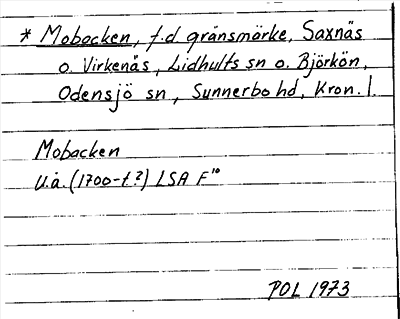 * Mobacken, f.d gränsmärke, Saxnäs
o. Virkenäs, Lidhults sn o. Björkön,
Odensjö sn, Sunnerbo hd, Kron. l.
Mobacken
u.å. (1700-t?) LSA F¹⁰
POL 1973